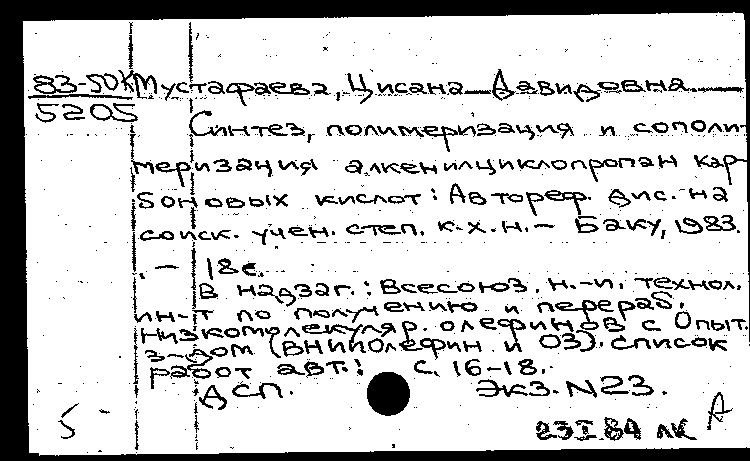 83-50к Мустафаева, Цисана Давидовна
5205
Синтез, полимеризация и сополи-
меризация алкенилциклопропан кар-
боновых кислот: Автореф. дис. на
соиск. учен. степ. к.х.н. – Баку, 1983.
. – 18с.
В надзаг.: Всесоюз. н.-и. технол.
ин-т по получению и перераб.
низкомолекуляр. олефинов с Опыт.
з-дом (ВНИИОлефин и ОЗ). Список
работ авт.: с. 16-18.
ДСП. Экз. N23.
5 -
23 I 84 лк А